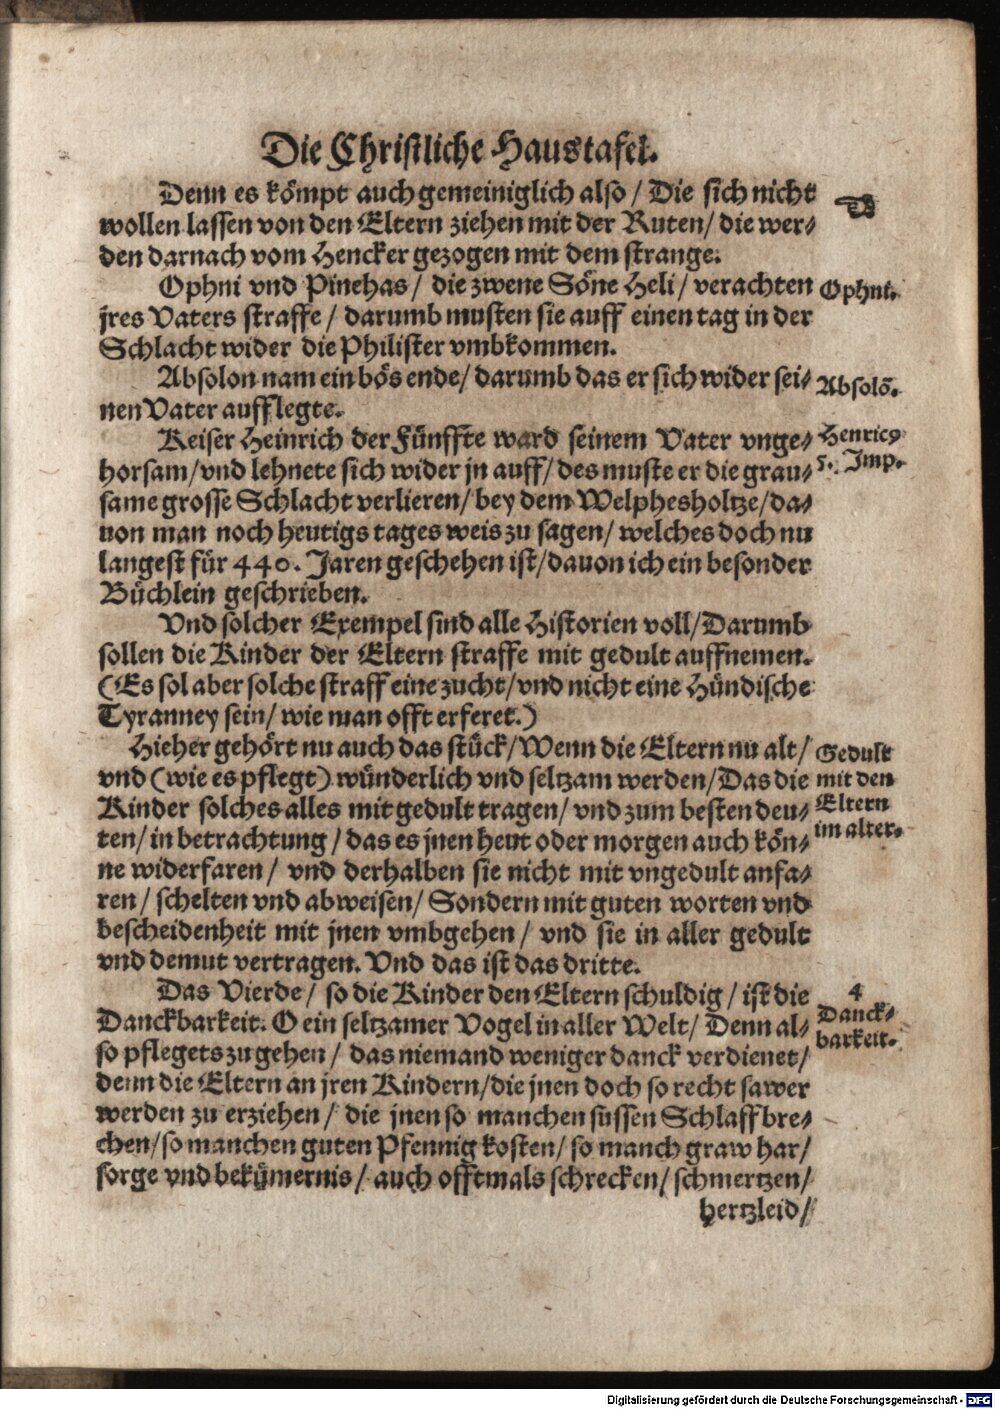 Die Christliche Haustafel.
Denn es kömpt auch gemeiniglich also / Die sich nicht
wollen lassen von den Eltern ziehen mit der Ruten / die wer⸗
den darnach vom Hencker gezogen mit dem strange.
Ophni vnd Pinehas / die zwene Söne Heli / verachten
Ophni.
jres Vaters straffe / darumb musten sie auff einen tag in der
Schlacht wider die Philister vmbkommen.
Absolon nam ein bös ende / darumb das er sich wider sei⸗
Absolō.
nen Vater aufflegte.
Keiser Heinrich der Fünffte ward seinem Vater vnge⸗
Henricꝰ
horsam / vnd lehnete sich wider jn auff / des muste er die grau⸗
5. Imp.
same grosse Schlacht verlieren / bey dem Welphesholtze / da⸗
uon man noch heutigs tages weis zu sagen / welches doch nu
langest für 440. Jaren geschehen ist / dauon ich ein besonder
Büchlein geschrieben.
Vnd solcher Exempel sind alle Historien voll / Darumb
sollen die Kinder der Eltern straffe mit gedult auffnemen.
(Es sol aber solche straff eine zucht / vnd nicht eine Hündische
Tyranney sein / wie man offt erferet.)
Hieher gehört nu auch das stück / Wenn die Eltern nu alt /
Gedult
vnd (wie es pflegt) wünderlich vnd seltzam werden / Das die
mit den
Kinder solches alles mit gedult tragen / vnd zum besten deu⸗
Eltern
ten / in betrachtung / das es jnen heut oder morgen auch kön⸗
im alter.
ne widerfaren / vnd derhalben sie nicht mit vngedult anfa⸗
ren / schelten vnd abweisen / Sondern mit guten worten vnd
bescheidenheit mit jnen vmbgehen / vnd sie in aller gedult
vnd demut vertragen. Vnd das ist das dritte.
Das Vierde / so die Kinder den Eltern schuldig / ist die
4
Danckbarkeit. O ein seltzamer Vogel in aller Welt / Denn al⸗
Danck⸗
so pflegets zu gehen / das niemand weniger danck verdienet /
barkeit.
denn die Eltern an jren Kindern / die jnen doch so recht sawer
werden zu erziehen / die jnen so manchen süssen Schlaff bre⸗
chen / so manchen guten Pfennig kosten / so manch graw har /
sorge vnd bekümernis / auch offtmals schrecken / schmertzen /
hertzleid /
Digitalisierung gefördert durch die Deutsche Forschungsgemeinschaft - DFG